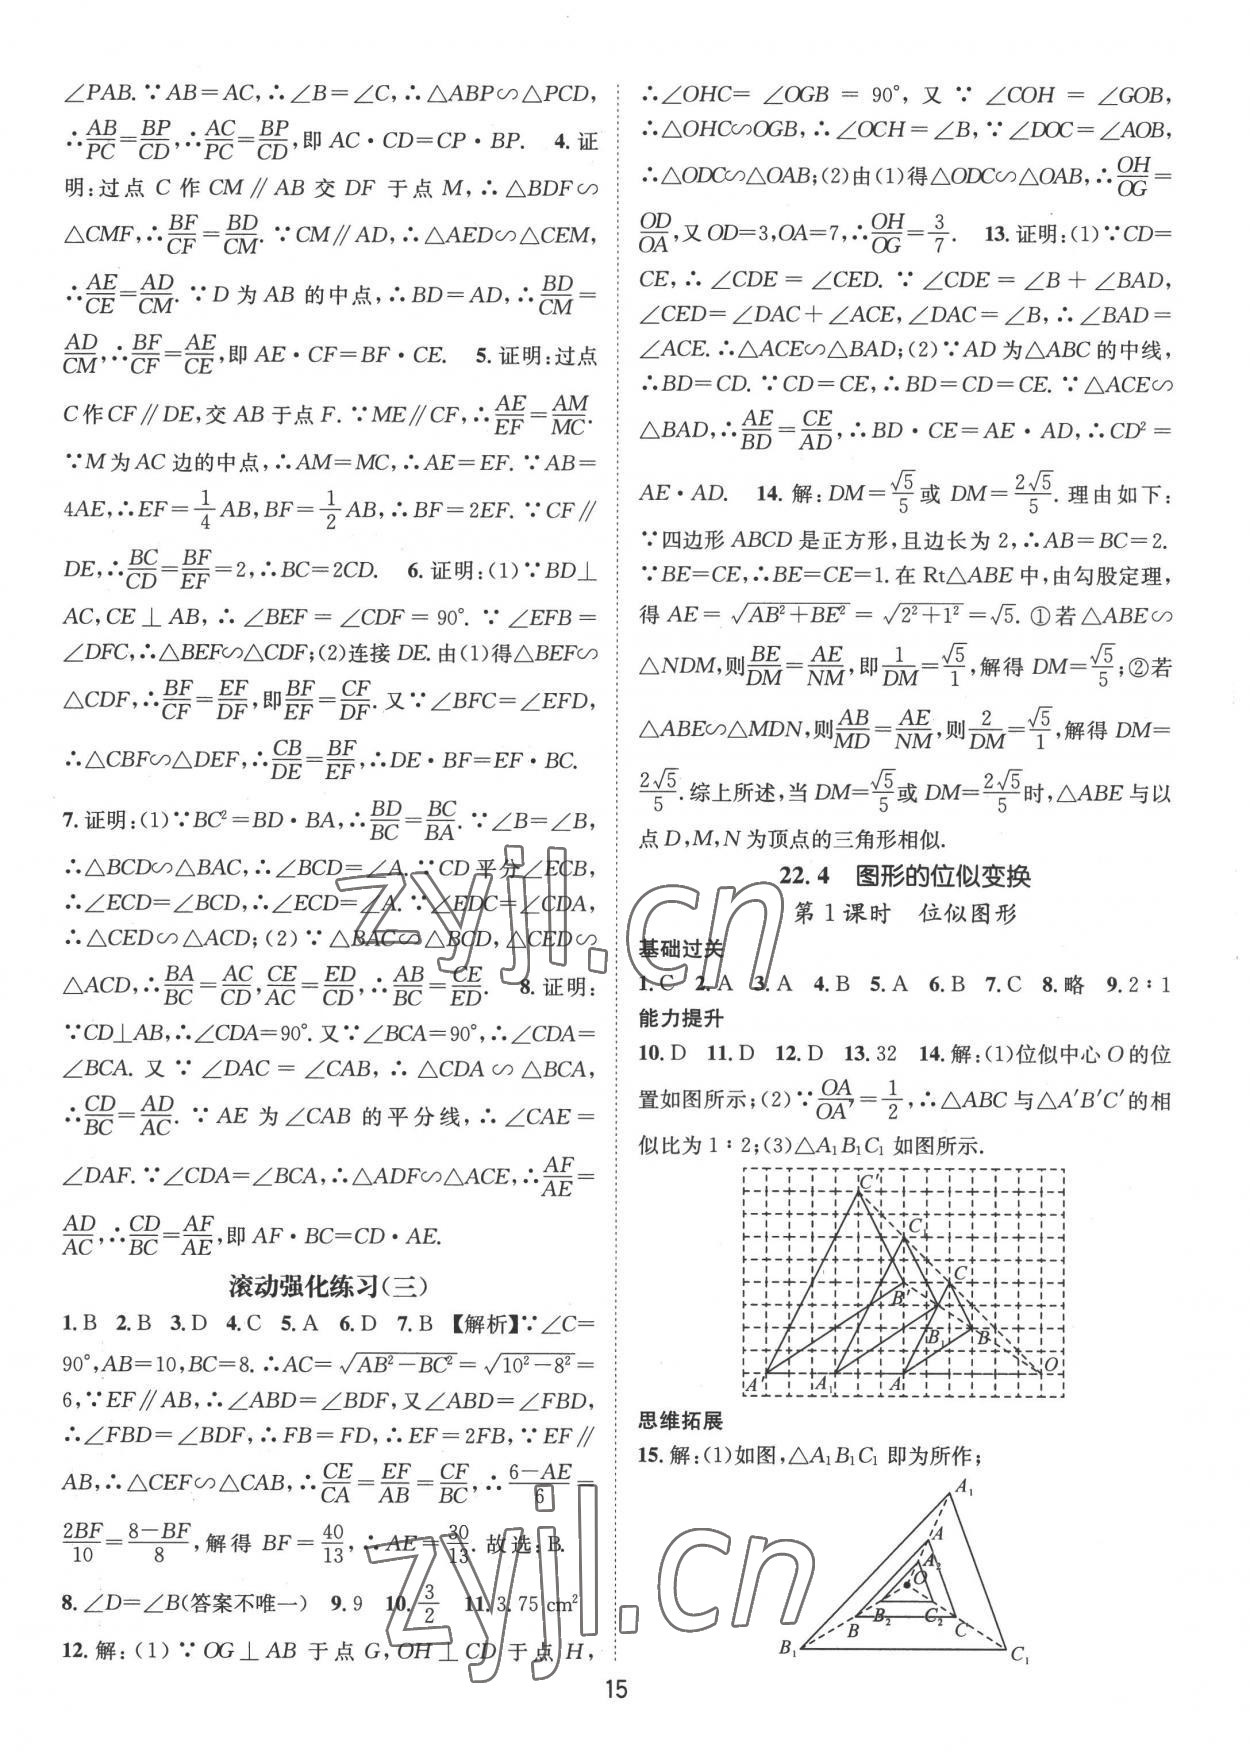 ∠PAB.∵AB=AC,∴∠B=∠C,∴△ABP∽△PCD,
∴AB/PC=BP/CD,∴AC/PC=BP/CD,即 AC·CD=CP·BP. 4.证
明:过点 C 作 CM∥AB 交 DF 于点 M,∴△BDF∽
△CMF,∴BF/CF=BD/CM.∵CM∥AD,∴△AED∽△CEM,
∴AE/CE=AD/CM.∵D 为 AB 的中点,∴BD=AD,∴BD/CM=
AD/CM,∴BF/CF=AE/CE,即 AE·CF=BF·CE. 5.证明:过点
C作CF∥DE,交 AB 于点 F.∵ME∥CF,∴AE/EF=AM/MC.
∵M为AC边的中点,∴AM=MC,∴AE=EF.∵AB=
4AE,∴EF=1/4 AB,BF=1/2 AB,∴BF=2EF.∵CF∥
DE,∴BC/CD=BF/EF=2,∴BC=2CD. 6.证明:(1)∵BD⊥
AC,CE⊥AB,∴∠BEF=∠CDF=90°.∵∠EFB=
∠DFC,∴△BEF∽△CDF;(2)连接 DE.由(1)得△BEF∽
△CDF,∴BF/CF=EF/DF,即BF/EF=CF/DF.又∵∠BFC=∠EFD,
∴△CBF∽△DEF,∴CB/DE=BF/EF,∴DE·BF=EF·BC.
7.证明:(1)∵BC²=BD·BA,∴BD/BC=BC/BA.∵∠B=∠B,
∴△BCD∽△BAC,∴∠BCD=∠A.∵CD平分∠ECB,
∴∠ECD=∠BCD,∴∠ECD=∠A.∵∠EDC=∠CDA,
∴△CED∽△ACD;(2)∵△BAC∽△BCD,△CED∽
△ACD,∴BA/BC=AC/CD,CE/AC=ED/CD,∴AB/BC=CE/ED. 8.证明:
∵CD⊥AB,∴∠CDA=90°.又∵∠BCA=90°,∴∠CDA=
∠BCA.又∵∠DAC=∠CAB,∴△CDA∽△BCA,
∴CD/BC=AD/AC.∵AE 为∠CAB 的平分线,∴∠CAE=
∠DAF.∵∠CDA=∠BCA,∴△ADF∽△ACE,∴AF/AE=
AD/AC,∴CD/BC=AF/AE,即 AF·BC=CD·AE.
滚动强化练习(三)
1.B 2.B 3.D 4.C 5.A 6.D 7.B 【解析】∵∠C=
90°,AB=10,BC=8.∴AC=√(AB²−BC²)=√(10²−8²)=
6,∵EF∥AB,∴∠ABD=∠BDF,又∠ABD=∠FBD,
∴∠FBD=∠BDF,∴FB=FD,∴EF=2FB,∵EF∥
AB,∴△CEF∽△CAB,∴CE/CA=EF/AB=CF/BC,∴(6−AE)/6=
2BF/10=(8−BF)/8,解得 BF=40/13,∴AE=30/13.故选:B.
8.∠D=∠B(答案不唯一) 9.9 10.3/2 11.3.75 cm²
12.解:(1)∵OG⊥AB 于点 G,OH⊥CD 于点 H,
∴∠OHC=∠OGB=90°,又∵∠COH=∠GOB,
∴△OHC∽OGB,∴∠OCH=∠B,∵∠DOC=∠AOB,
∴△ODC∽△OAB;(2)由(1)得△ODC∽△OAB,∴OH/OG=
OD/OA,又OD=3,OA=7,∴OH/OG=3/7. 13.证明:(1)∵CD=
CE,∴∠CDE=∠CED.∵∠CDE=∠B+∠BAD,
∠CED=∠DAC+∠ACE,∠DAC=∠B,∴∠BAD=
∠ACE.∴△ACE∽△BAD;(2)∵AD为△ABC的中线,
∴BD=CD.∵CD=CE,∴BD=CD=CE.∵△ACE∽
△BAD,∴AE/BD=CE/AD,∴BD·CE=AE·AD,∴CD²=
AE·AD. 14.解:DM=√5/5或 DM=2√5/5.理由如下:
∵四边形 ABCD 是正方形,且边长为 2,∴AB=BC=2.
∵BE=CE,∴BE=CE=1.在Rt△ABE中,由勾股定理,
得 AE=√(AB²+BE²)=√(2²+1²)=√5.①若△ABE∽
△NDM,则BE/DM=AE/NM,即1/DM=√5/1,解得 DM=√5/5;②若
△ABE∽△MDN,则AB/MD=AE/NM,则2/DM=√5/1,解得 DM=
2√5/5.综上所述,当 DM=√5/5或 DM=2√5/5时,△ABE与以
点 D,M,N为顶点的三角形相似.
22.4 图形的位似变换
第1课时 位似图形
基础过关
1.C 2.A 3.A 4.B 5.A 6.B 7.C 8.略 9.2∶1
能力提升
10.D 11.D 12.D 13.32 14.解:(1)位似中心O的位
置如图所示;(2)∵OA/OA′=1/2,∴△ABC与△A′B′C′的相
似比为1∶2;(3)△A₁B₁C₁ 如图所示.
C′
C₁
C
B′
B₁
B
A′ A₁ A O
思维拓展
15.解:(1)如图,△A₁B₁C₁ 即为所作;
A₁
A
A₂
O
B B₂ C₂ C
B₁ C₁
15
zyjl.cn
zyjl.cn